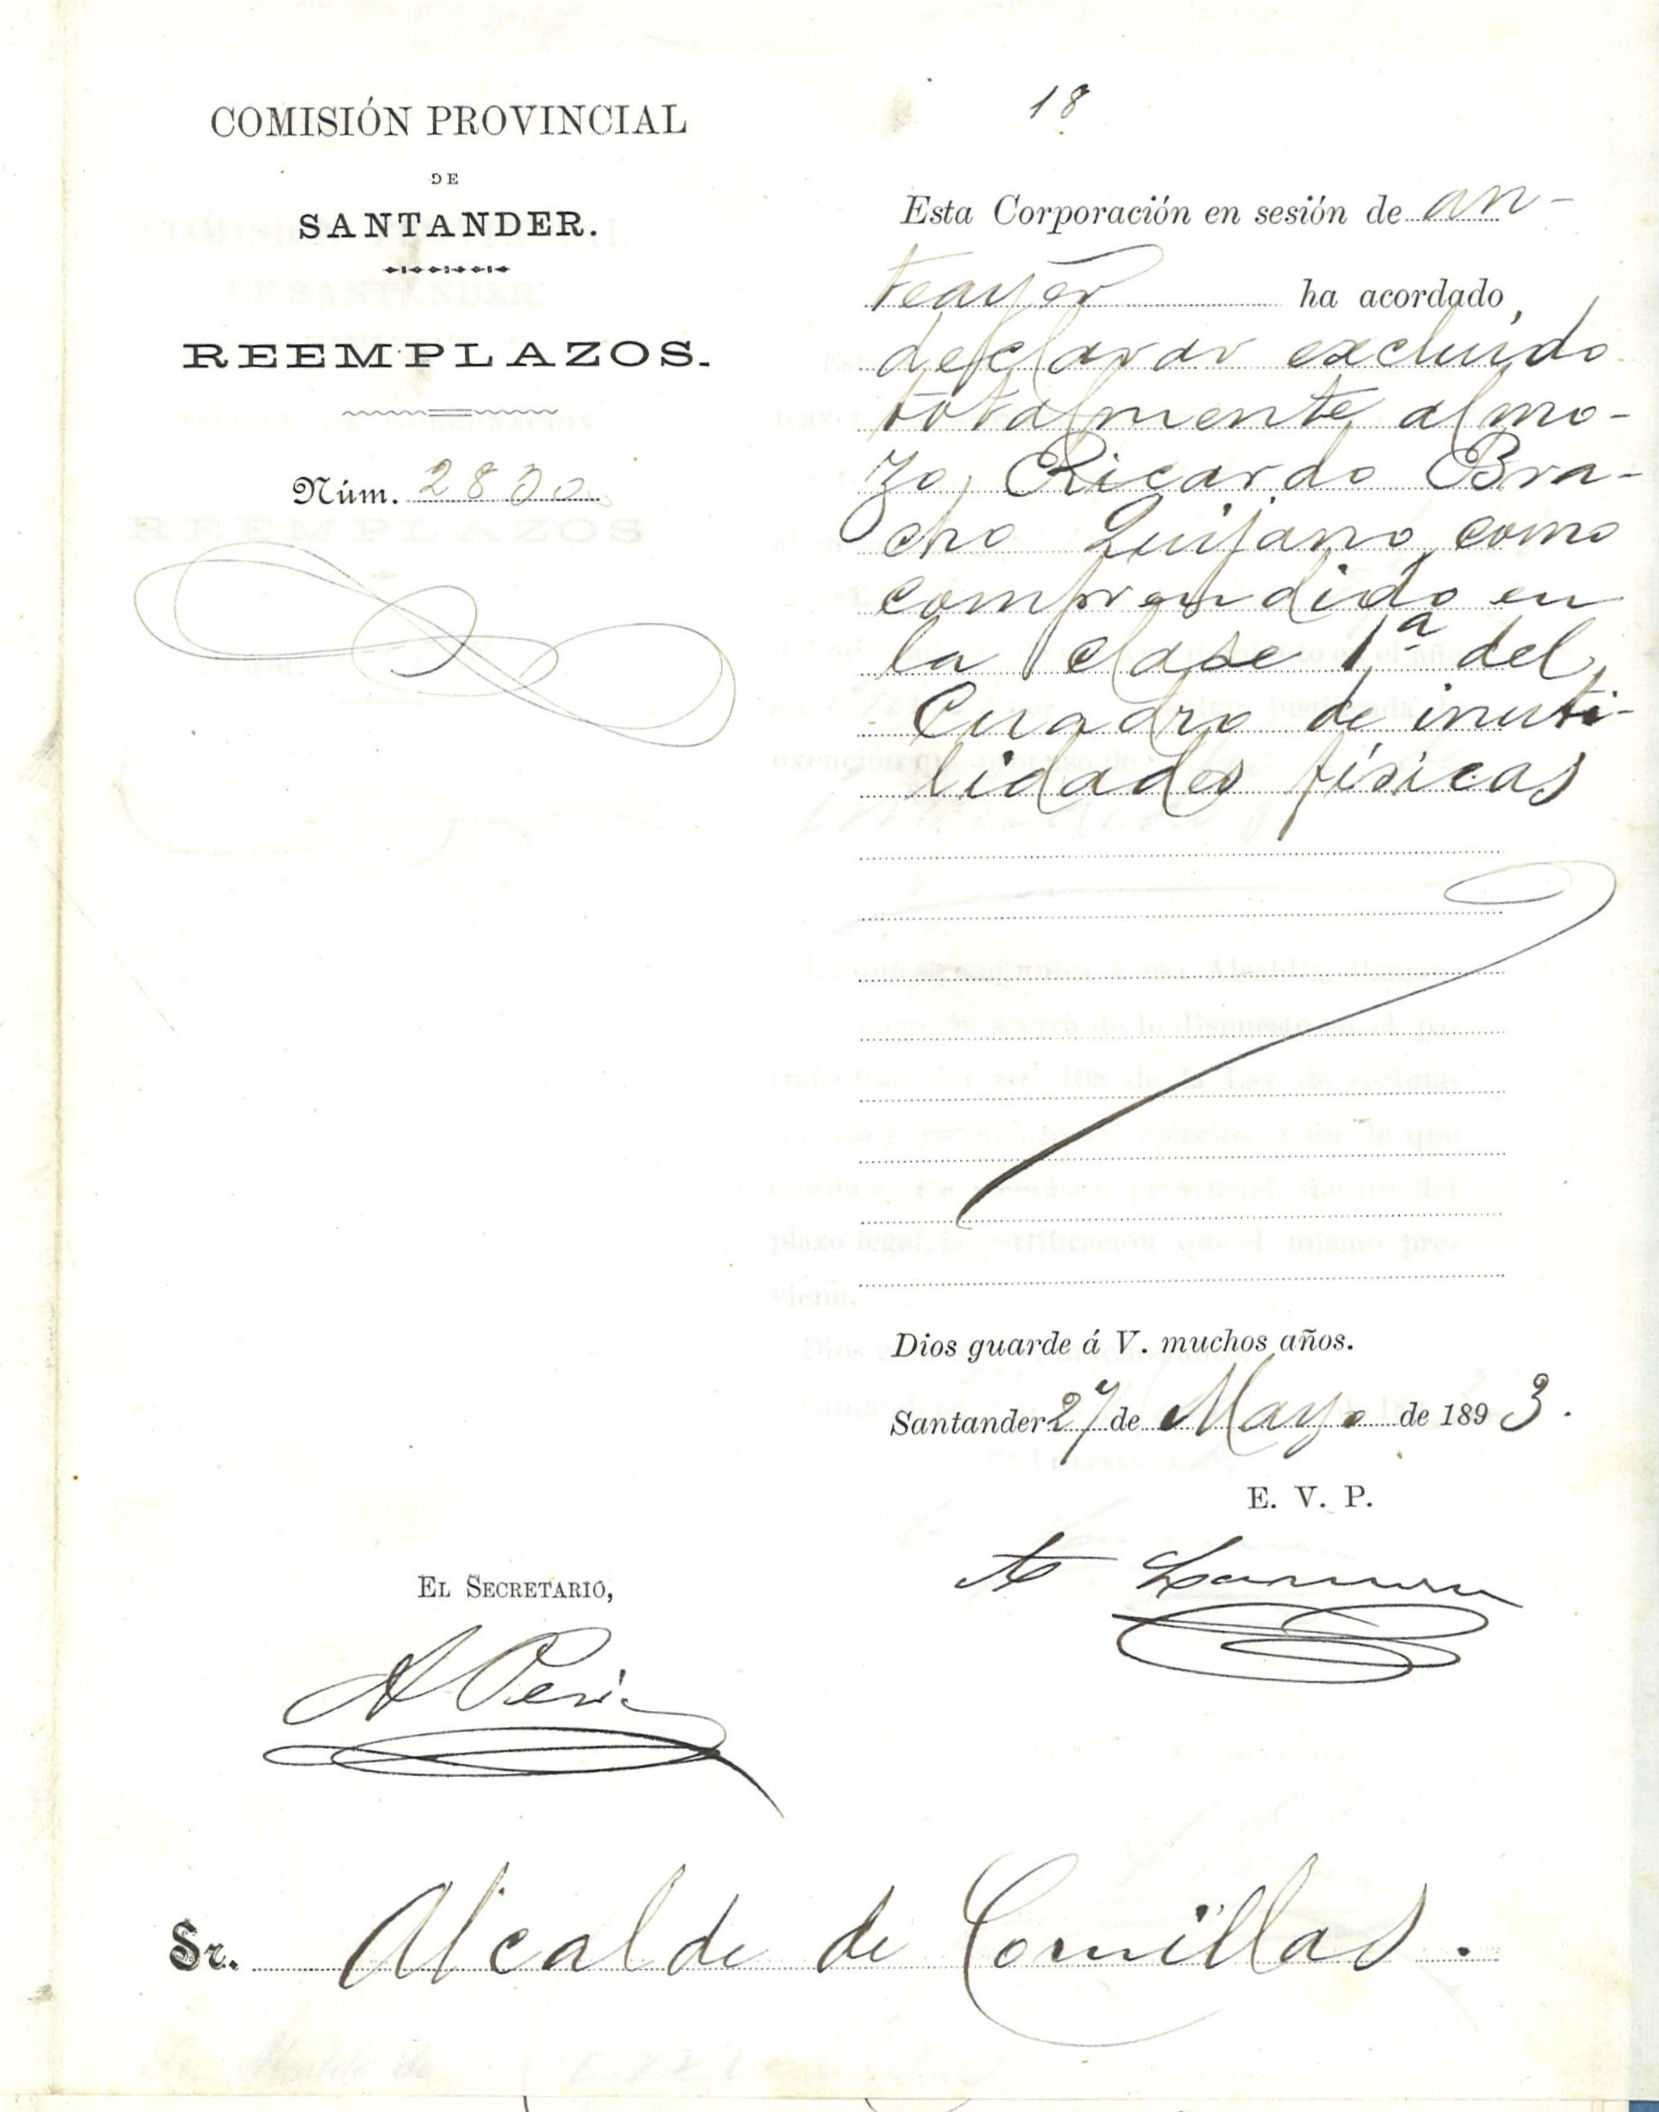 COMISIÓN PROVINCIAL
DE
SANTANDER.
REEMPLAZOS.
Núm.
18
Esta Corporación en sesión de an-
teayer ha acordado
declarar excluído
totalmente al mo-
zo, Ricardo Bra-
cho Quijano, como
comprendido en
la clase 1ª del
Cuadro de inuti-
lidades físicas
Dios guarde á V. muchos años.
Santander 27 de Mayo de 1893.
E. V. P.
EL SECRETARIO,
Sr. Alcalde de Comillas.